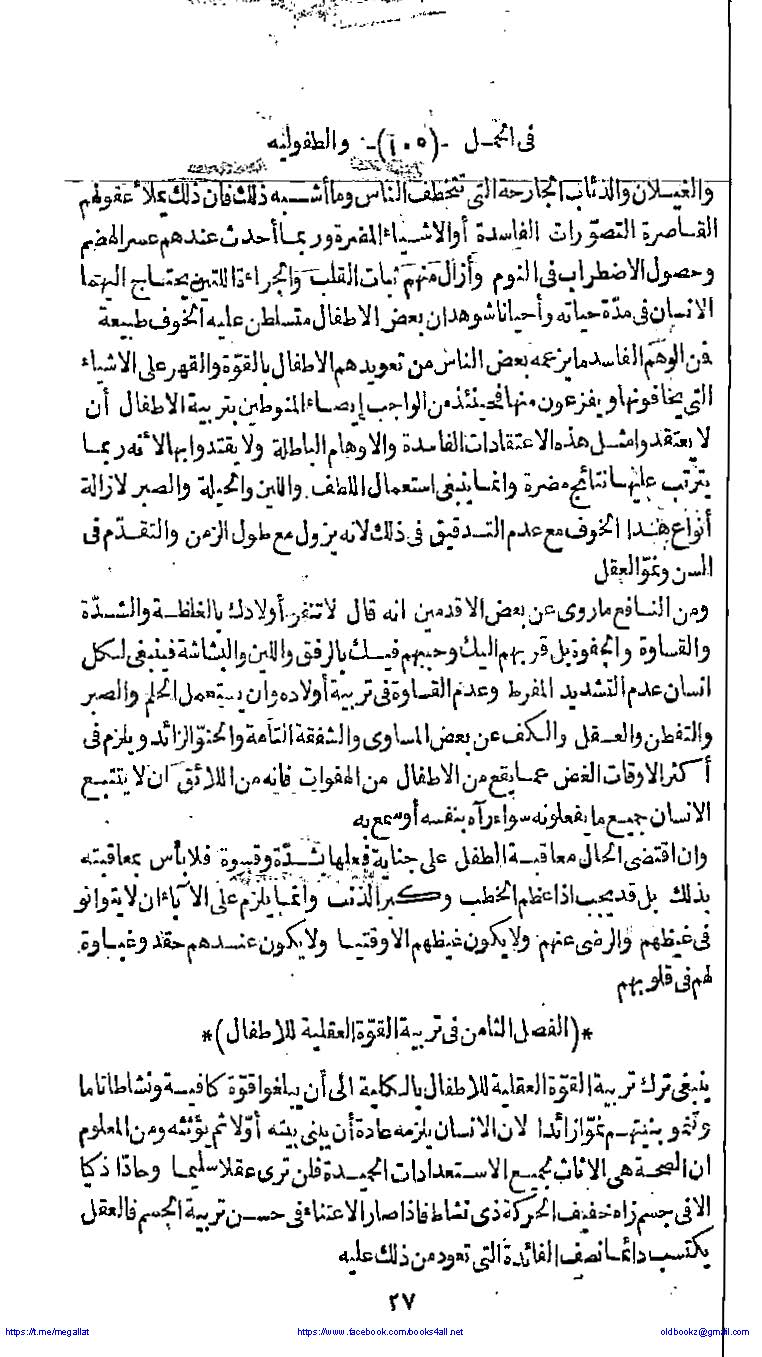 فى الحمـل -(١٠٥)- والطفوليه
والغيـلان والذئاب الجارحة التى تتخطف الناس وما أشـبه ذلك فان ذلك يملأ عقولهم
القـاصرة التصوّرات الفاسدة أو الاشيـاء المضرة وربمـا أحدث عندهم عسر الهضم
وحصول الاضطراب فى النوم وأزال منهم ثبات القلب والجراءة اللتين يحتـاج اليهما
الانسان فى مدّة حياته وأحيانا شوهد ان بعض الاطفال متسلطن عليه الخوف طبيعة
فن الوهم الفاسد ما يزعمه بعض الناس من تعويدهم الاطفال بالقوّة والقهر على الاشياء
التى يخافونها او يفزعون منها فحينئذ من الواجب إيصاء المنوطين بتربية الاطفال أن
لا يعتقدوا مثـل هذه الاعتقادات الفاسدة والاوهام الباطلة ولا يقتدوا بها لأنه ربمـا
يترتب عليهـا نتائج مضرة وانمـا ينبغى استعمال اللطف واللين والحيلة والصبر لازالة
أنواع هـذا الخوف مع عدم التـدقيق فى ذلك لانه يزول مع طول الزمن والتقدّم فى
السن ونموّ العقل
ومن النـافع ما روى عن بعض الاقدمين انه قال لا تنفر أولادك بالغلظـة والشـدّة
والقساوة والجفوة بل قربهم اليك وحببهم فيـك بالرفق واللين والبشاشة فينبغى لـكل
انسان عدم التشديد المفرط وعدم القساوة فى تربية أولاده وان يستعمل الحلم والصبر
والتفطن والعـقل والكف عن بعض المساوى والشفقة التـامة والحنوّ الزائد ويلزم فى
أكثر الاوقات الغض عمـا يقع من الاطفال من الهفوات فانه من اللائق ان لا يتتبـع
الانسان جميـع ما يفعلونه سواء رآه بنفسه أو سمع به
وان اقتضى الحال معاقبـة الطفل على جناية فعلها بشـدّة وقسوة فلا بأس بمعاقبته
بذلك بل قد يجب اذا عظم الخطب وكبر الذنب وانمـا يلزم على الآباء ان لا يتوانو
فى غيظهم والرضى عنهم ولا يكون غيظهم الا وقتيـا ولا يكون عنـدهم حقد وغبـاوة
لهم فى قلوبهم
*(الفصل الثامن فى تربيـة القوّة العقلية للاطفال)*
ينبغى ترك تربية القوّة العقلية للاطفال بالـكلية الى أن يبلغوا قوّة كافيـة ونشاطا تاما
وتنمو بنيتهـم نموّا زائدا لان الانسان يلزمه عادة أن يبنى بيته أوّلا ثم يؤثثه ومن المعلوم
ان الصحة هى الاثاث لجميع الاسـتعدادات الجيـدة فلن ترى عقلا سليمـا وحاذا ذكيا
الا فى جسم زاه خفيف الحركة ذى نشاط فاذا صار الاعتنـاء فى حسـن تربية الجسم فالعقل
يكتسب دائمـا نصف الفائدة التى تعود من ذلك عليه
٢٧
https://t.me/megallat https://www.facebook.com/books4all.net oldbookz@gmail.com